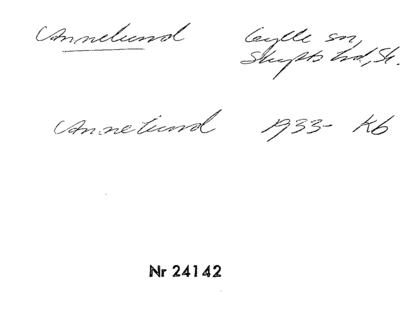 Annelund Gylle sn,
Skytts hd, Sk.
Annelund 1933- Kb
Nr 24142